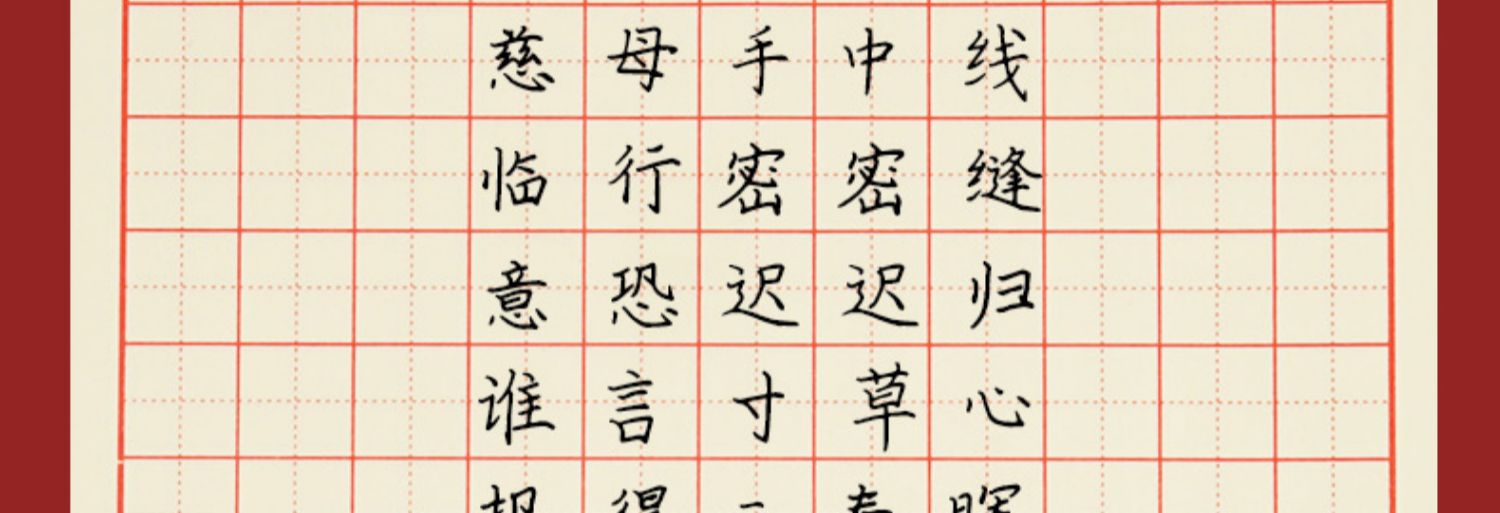 慈母手中线
临行密密缝
意恐迟迟归
谁言寸草心